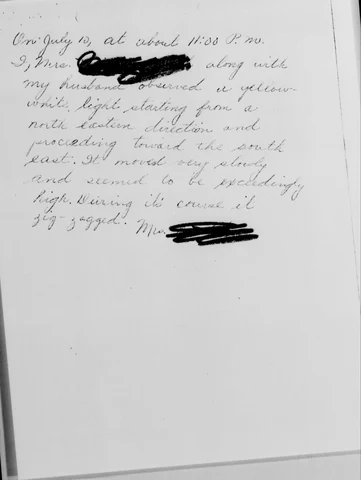 On July 13, at about 11:00 P.M.
I, Mrs. along with
my husband observed a yellow-
white light starting from a
north eastern direction and
proceeding toward the south
east. It moved very slowly
and seemed to be exceedingly
high. During its course it
zig-zagged. Mrs.